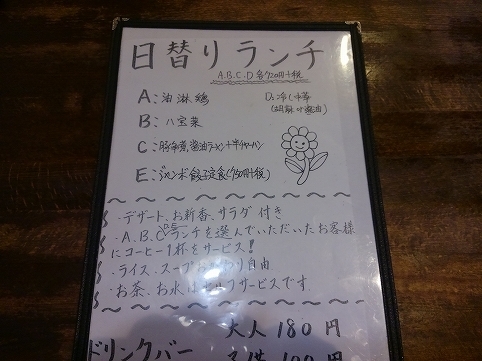 日替りランチ
A.B.C.D 各720円+税
A:油淋鶏
D:冷し中華
(胡麻 or 醤油)
B:八宝菜
C:醤油ラーメン+半チャーハン
E:ジャンボ餃子定食(750円+税)
・デザート、お新香、サラダ付き
・A、B、Cランチを選んでいただいたお客様
にコーヒー1杯をサービス!
・ライス、スープおかわり自由
・お茶、お水はセルフサービスです
大人 180円
ドリンクバー
子供 100円